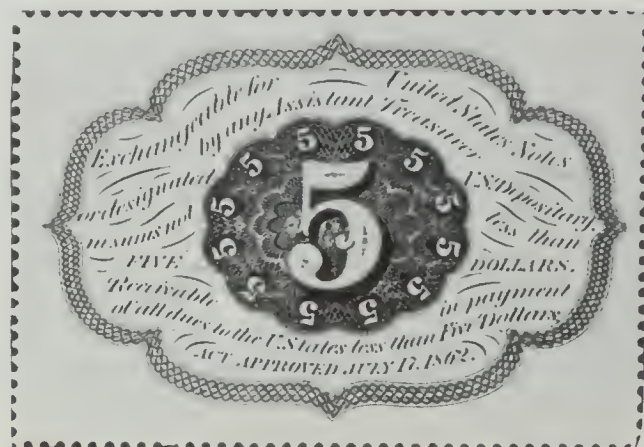 Exchangeable for United States Notes
by any Assistant Treasurer
or designated U.S. Depositary
in sums not less than
FIVE DOLLARS.
Receivable in payment
of all dues to the U. States less than Five Dollars.
ACT APPROVED JULY 17, 1862.
5
5 5 5 5 5 5 5 5 5 5 5 5